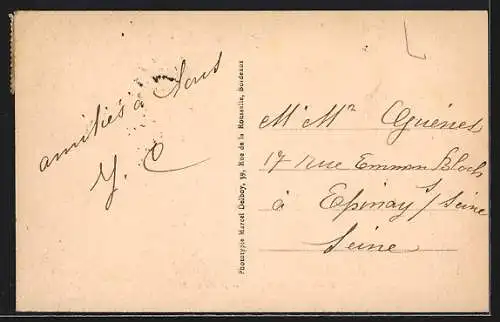 amitiés à tous
Y. C
Phototypie Marcel Delboy, 39, Rue de la Rousselle, Bordeaux
Mr Mme Guénes
17 rue Emmon Bloch
à Epinay s/ Seine
Seine